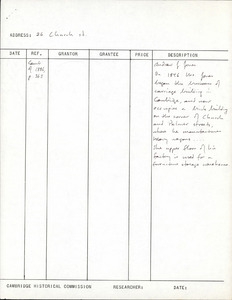 ADDRESS: 26 Church st.
DATE REF. GRANTOR GRANTEE PRICE DESCRIPTION
of 1896, p. 363
Andrew J. Jones
In 1896 Mr. Jones
began the business of
carriage building in
Cambridge, and now
occupies a Brick Building
on the corner of Church
and Palmer streets,
where he manufactures
heavy wagons.
The upper floor of his
factory is used for a
furniture storage warehouse
CAMBRIDGE HISTORICAL COMMISSION RESEARCHER: DATE: